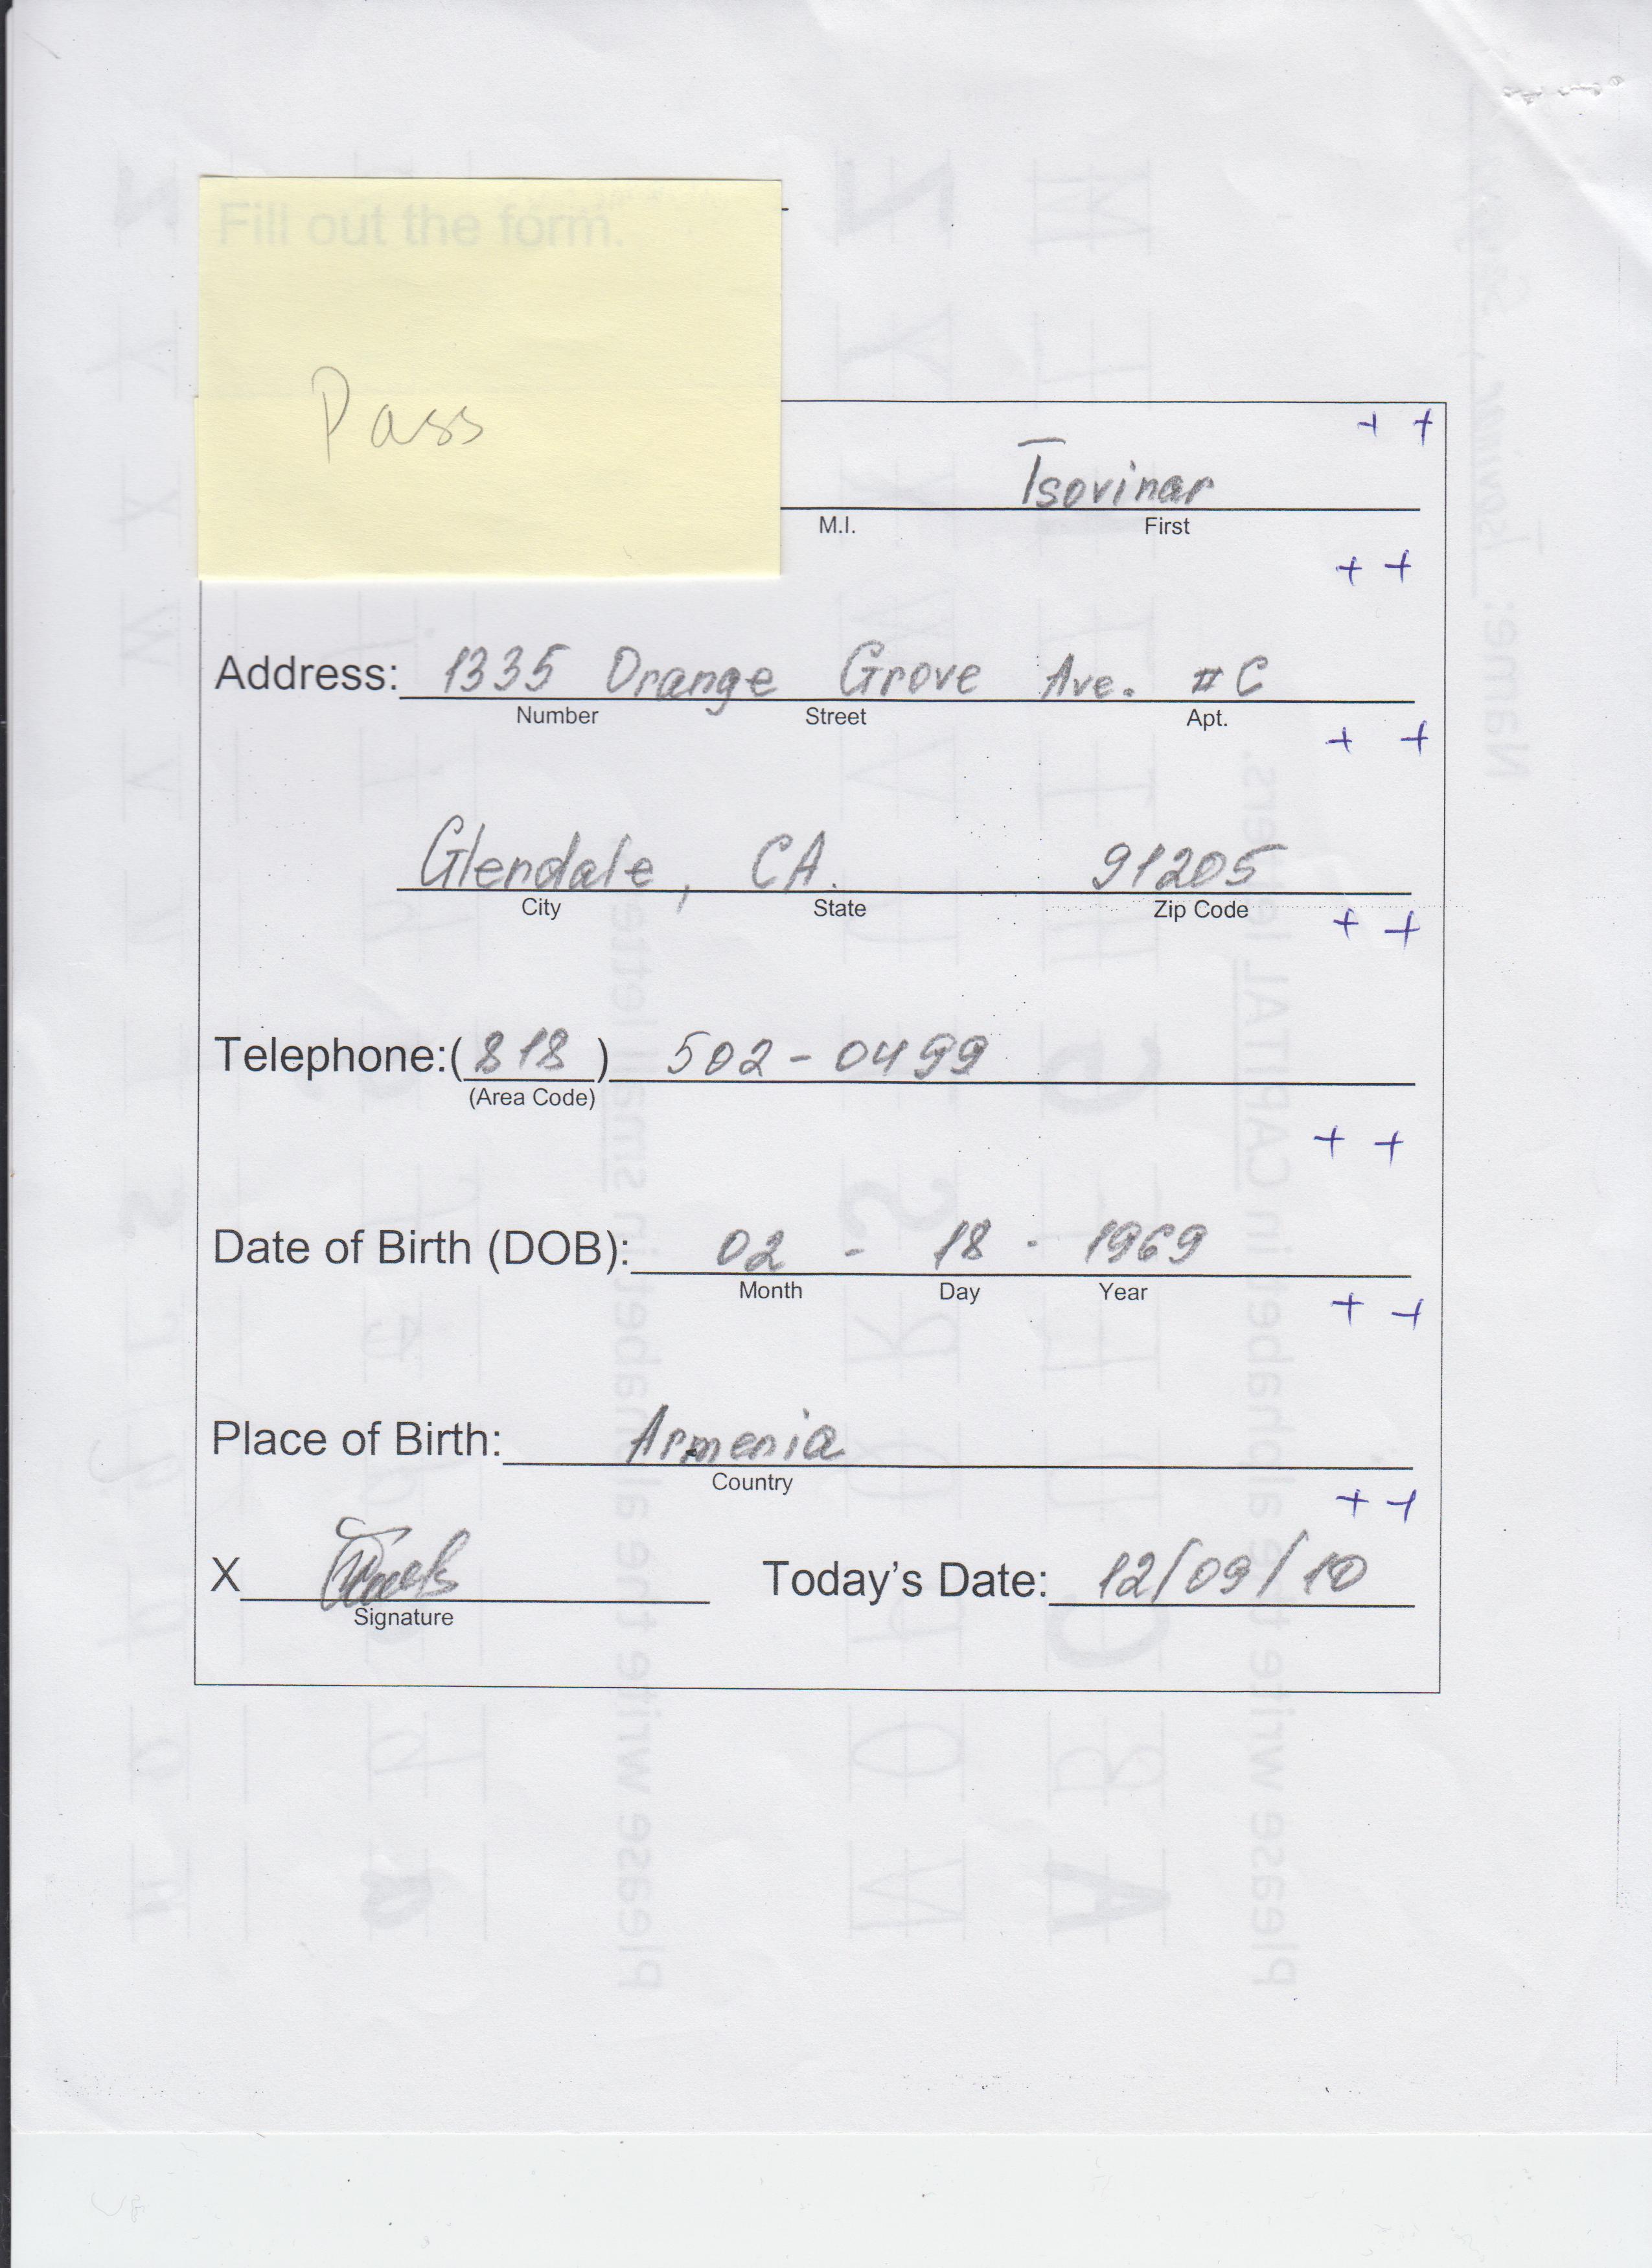 Fill out the form.
Pass
+ +
Tsovinar
M.I. First
+ +
Address: 1335 Orange Grove Ave. #C
Number Street Apt.
+ +
Glendale, CA. 91205
City State Zip Code
+ +
Telephone:(818) 502-0499
(Area Code)
+ +
Date of Birth (DOB): 02 - 18 - 1969
Month Day Year
+ +
Place of Birth: Armenia
Country
+ +
X Today's Date: 12/09/10
Signature